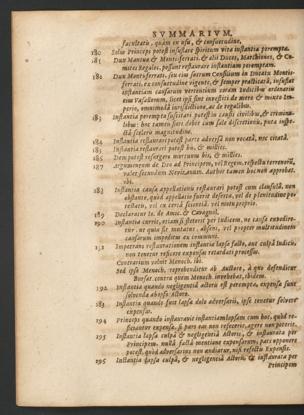 SVMMARIVM,
facultatis, quàm in vsu, & consuetudine.
180 Solus Princeps potest infusare spiritum vitæ instantia perempta.
181 Dux Mantuæ & Montisferrati, & alii Duces, Marchiones, & Comites Regales, possunt restaurare instantiam peremptam.
182 Dux Montisferrati, seu eius sacrum Consilium in Ducatu Montisferrati, ex consuetudine vigente, & semper practicata, infusat
instantiam causarum vertentium coram Iudicibus ordinariis
eius Vasallorum, licet ipsi sint investiti de mero & mixto Imperio, omnimoda iurisdictione, ac de regalibus.
183 Instantia perempta suscitari potest in causis civilibus, & criminalibus: hoc tamen fieri debet cum sale discretionis, puta inspecta sceleris magnitudine.
184 Instantia restaurari potest parte adversa non vocata, nec citata.
185 Instantia restaurari potest bis, & milies.
186 Deus potest resurgere mortuum bis, & milies.
187 Argumentum de Deo ad Principem, vel Regem, respectu terrenorum,
valet secundum Nevizanum. Author tamen hoc non approbat.
188 Instantia causæ appellationis restaurari potest cum clausula, non
obstante, quod appellatio fuerit deserta, vel de plenitudine potestatis, vel ex certa scientia, vel motu proprio.
189 Declaratur &c. de Amic. & Cavagnol.
190 Instantia currit, etiam si steterit per iudicem, ne causa expediretur
causarum impeditus ex communi.
191 Impetrans restaurationem instantiæ lapsæ facto, aut culpa Iudicis,
non tenetur reficere expensas retardati processus.
Contrarium voluit Menoch. ibi.
Sed ipse Menoch. reprehenditur ab Auctore, à quo defenditur
Bursat. contra quem Menoch. invehebat, ibidem.
192 Instantia quando negligentia Actoris est perempta, expensæ sunt
solvendæ ab ipso Actore.
193 Instantia quando sunt lapsa dolo adversarii, ipse tenetur solvere
expensas.
194 Princeps quando instauravit instantiam lapsam cum hoc, quòd reficiantur expensæ, si pars eas non refecerit, agere non poterit.
195 Instantia lapsa culpa & negligentia Actoris, & instaurata per
Principem, nulla facta mentione expensarum, pars opponere
potest, quòd adversarius non audiatur, nisi refectis expensis.
196 Instantia lapsa culpa, & negligentia Actoris, & instaurata per
Principem